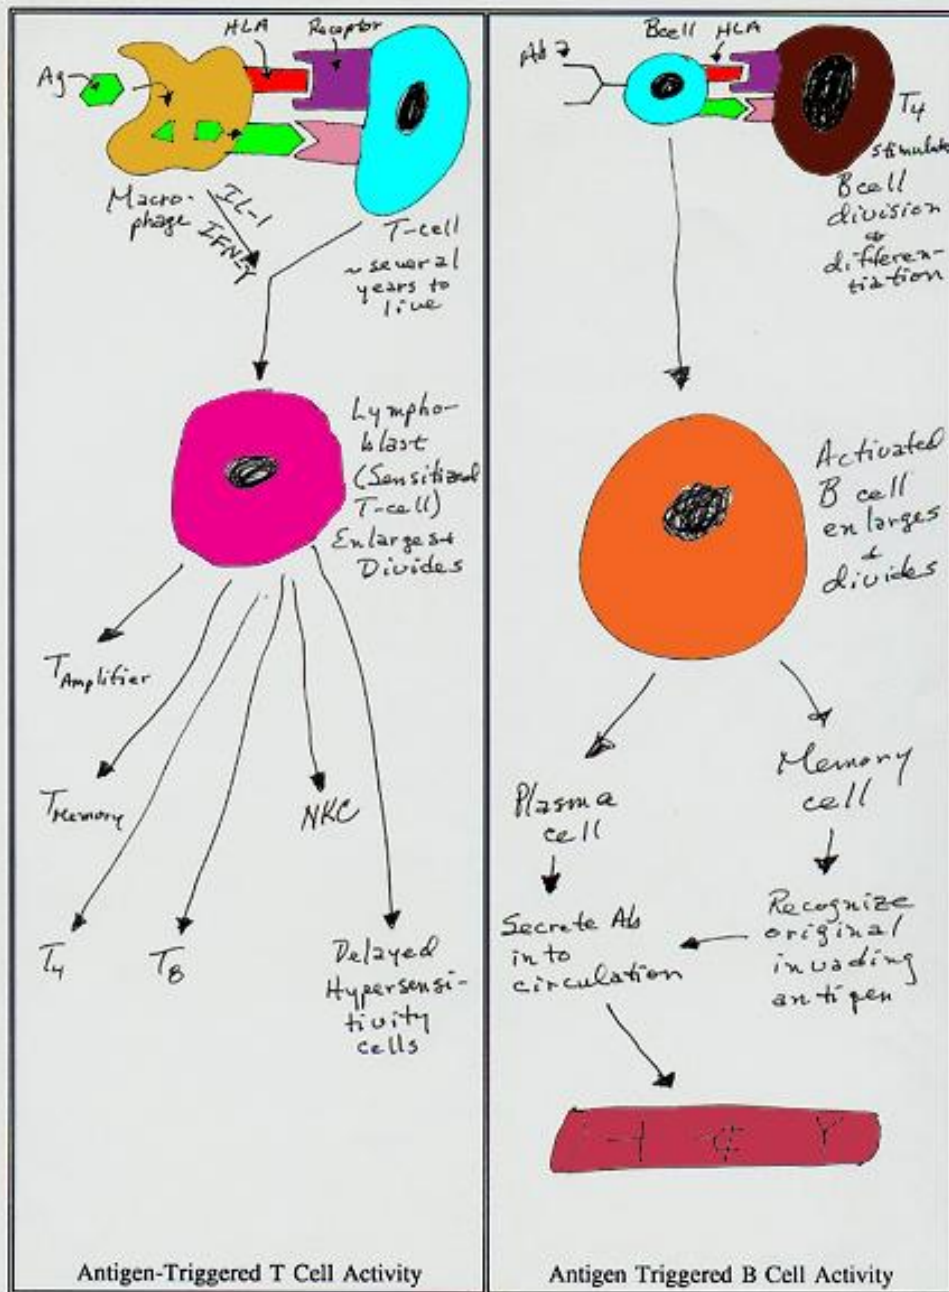 HLA
Receptor
Ag
Macro-
phage
IL-1
IFN-γ
T-cell
~ several
years to
live
Lympho-
blast
(Sensitized
T-cell)
Enlarges +
Divides
T Amplifier
T Memory
NKC
T4
T8
Delayed
Hypersensi-
tivity
cells
Antigen-Triggered T Cell Activity
Bcell
HLA
T4
stimulate
Bcell
division
&
differen-
tiation
Activated
B cell
enlarges
+
divides
Plasma
cell
Memory
cell
Secrete Ab
into
circulation
Recognize
original
invading
antigen
Antigen Triggered B Cell Activity